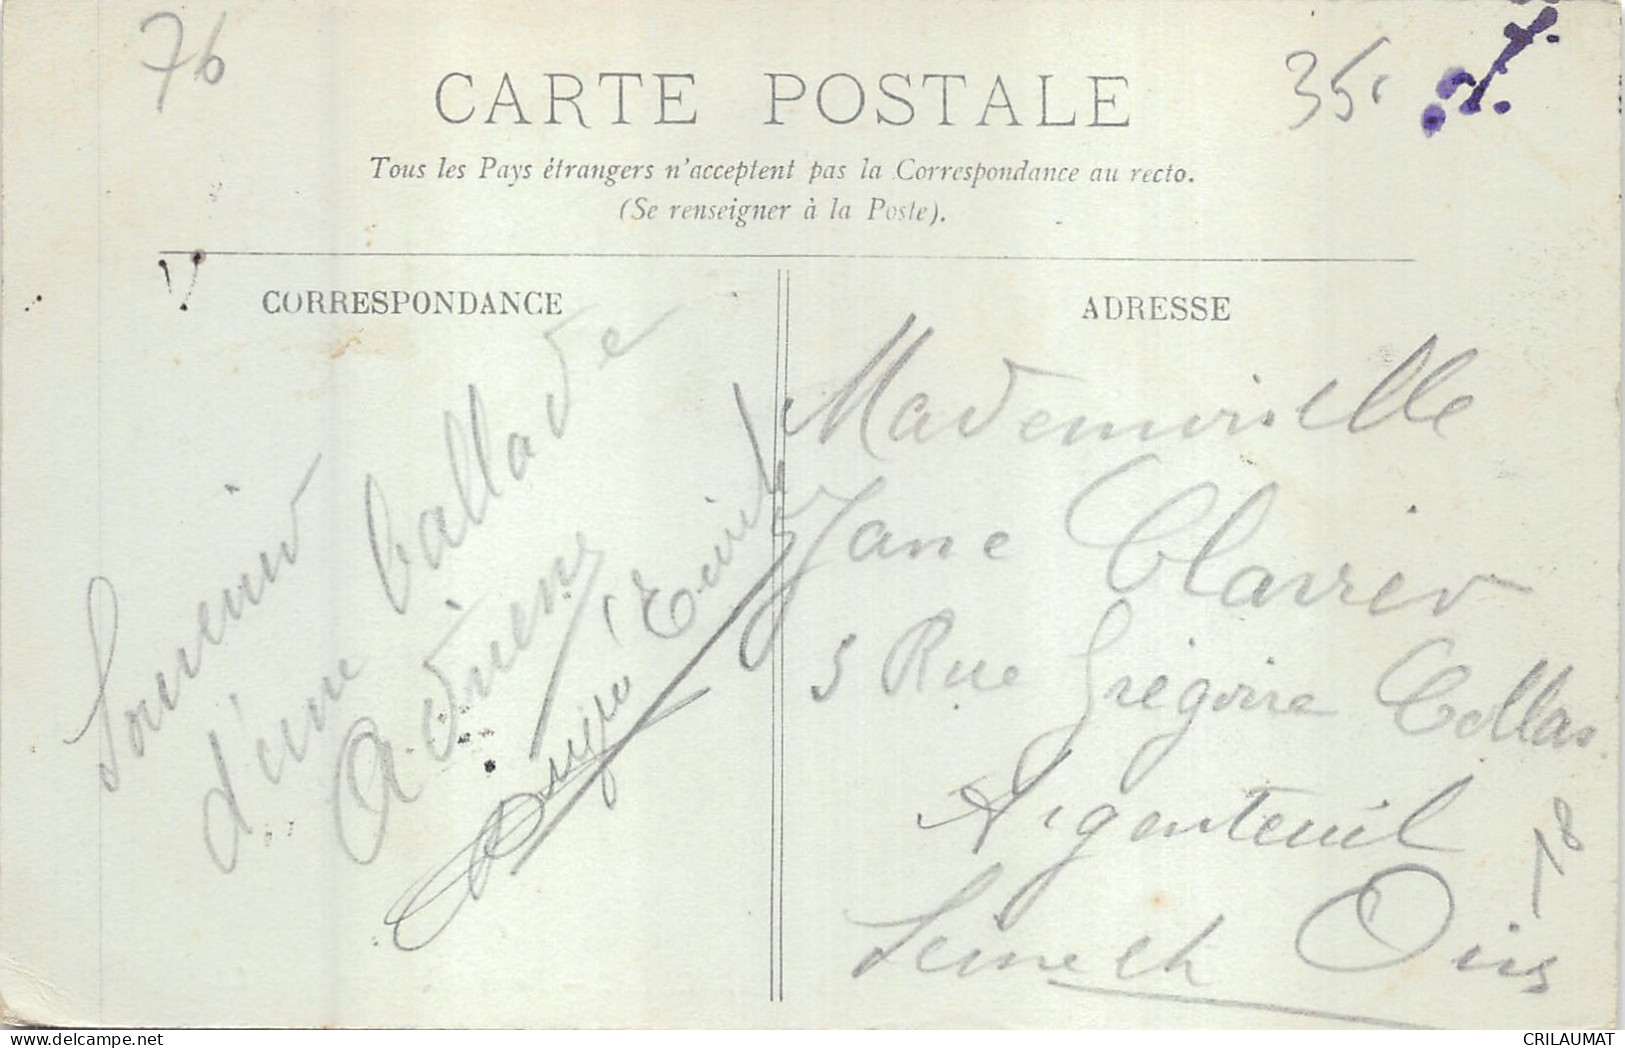 76
35
CARTE POSTALE
Tous les Pays étrangers n'acceptent pas la Correspondance au recto.
(Se renseigner à la Poste).
CORRESPONDANCE
Souvenir
d'une ballade
Adrien
ADRESSE
Mademoiselle
Jane
5 Rue Grégoire Collas
Argenteuil
Seine et Oise
18
delcampe.net
CRILAUMAT